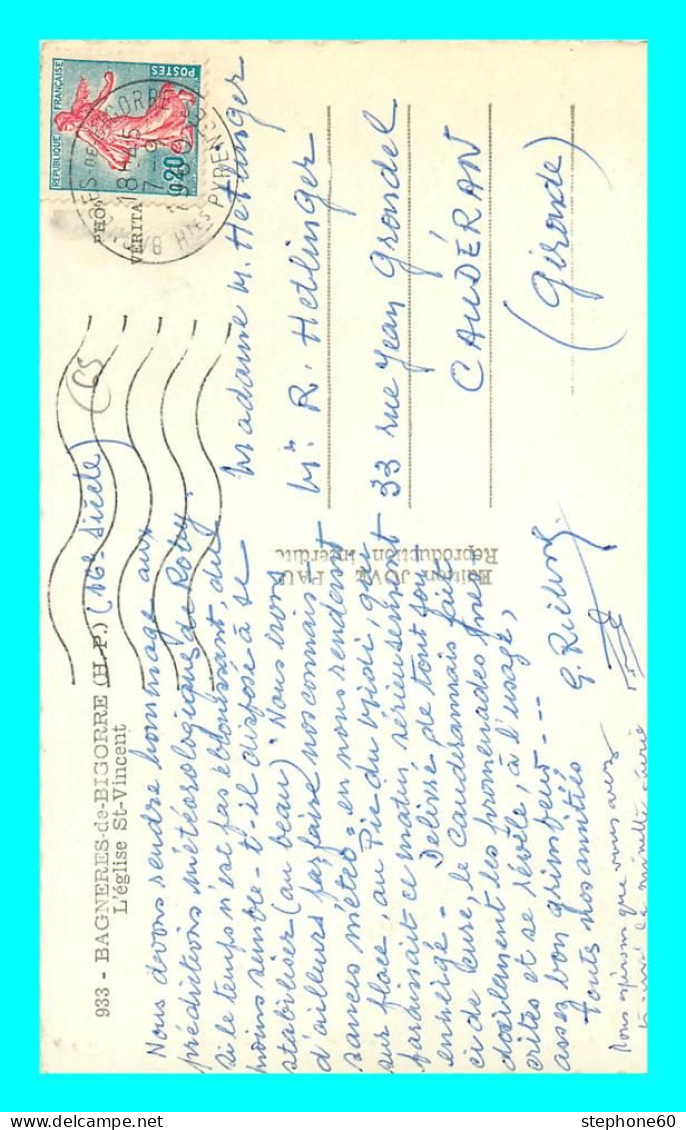 933 - BAGNERES-de-BIGORRE (H.-P.) (16e siècle) (65
L'église St-Vincent
Nous devons rendre hommage aux
prédictions météorologiques de Roby.
si le temps n'est pas éblouissant, du
moins semble-t-il disposé à se
stabiliser (au beau) Nous irons
d'ailleurs parfaire nos connais-
sances météo = en nous rendant
sur place, au Pic du Midi, qui
paraissait ce matin sérieusement
enneigé - Delissé de tout sou-
ci de leure, le Caudéranais fait
docilement les promenades pres-
crites et se révèle, à l'usage,
assez bon grimpeur - - -
Toutes nos amitiés
Nous espérons que vous avez
REPUBLIQUE FRANÇAISE
POSTES
0,20
BAGNERES-DE-BIGORRE
18H45
7 - 9
HTES PYRENEES
PHOTO
VERITABLE
Edition JOVE PAU
Reproduction interdite
Madame M. Hetlinger
Mr R. Hetlinger
33 rue Jean Grondel
CAUDÉRAN
(Gironde)
stephone60